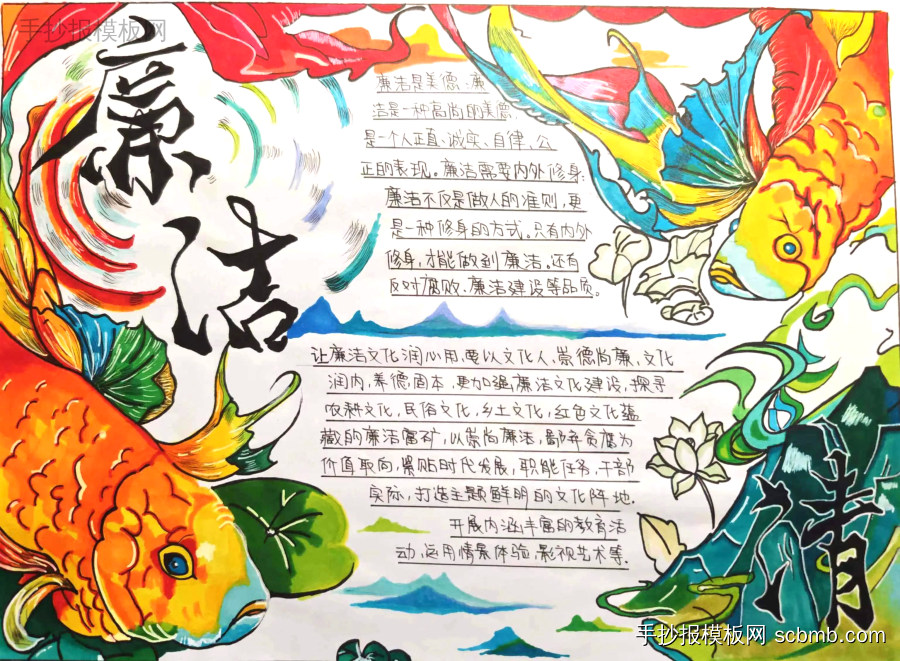 手抄报模板网
廉
洁
廉洁是美德,廉
洁是一种高尚的美德,
是一个人正直、诚实、自律、公
正的表现。廉洁需要内外修身:
廉洁不仅是做人的准则,更
是一种修身的方式。只有内外
修身,才能做到廉洁。还有
反对腐败、廉洁建设等品质。
让廉洁文化润心用,要以文化人、崇德尚廉,文化
润内,养德固本,更加强廉洁文化建设,探寻
农耕文化,民俗文化,乡土文化,红色文化蕴
藏的廉洁富矿,以崇尚廉洁,鄙弃贪腐为
价值取向,紧贴时代发展,职能任务,干部
实际,打造主题鲜明的文化阵地.
开展内涵丰富的教育活
动,运用情景体验,影视艺术等.
清
手抄报模板网 scbmb.com